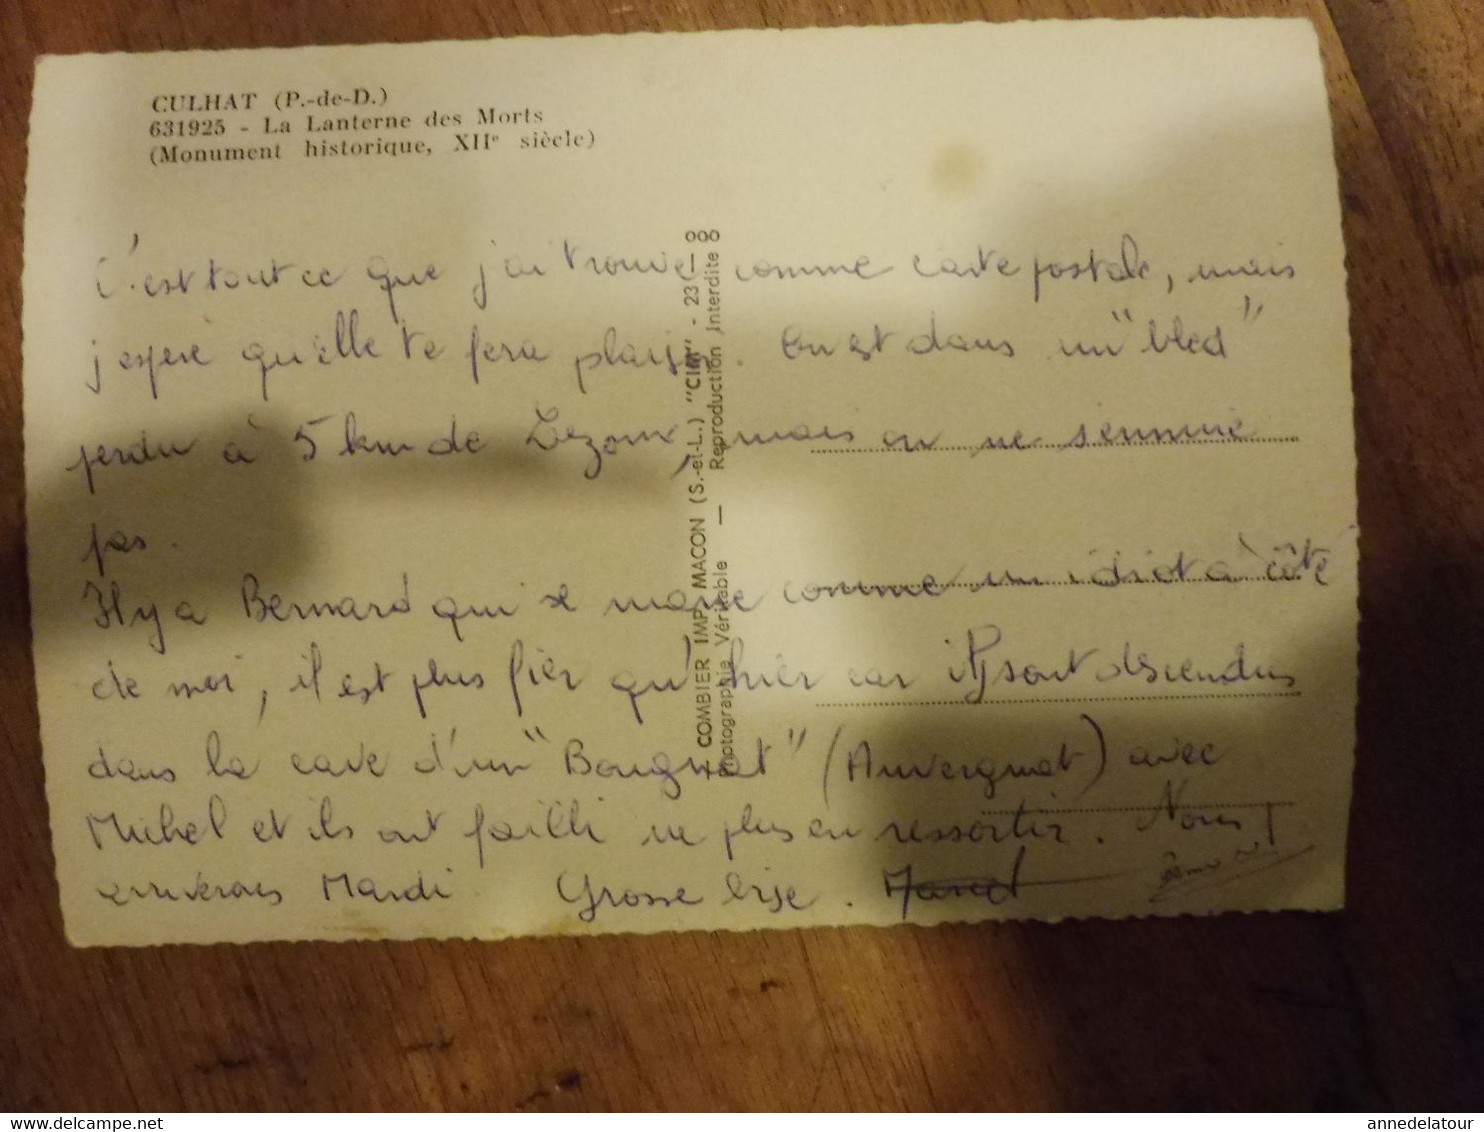 CULHAT (P.-de-D.)
631925 - La Lanterne des Morts
(Monument historique, XIIe siècle)
C'est tout ce que j'ai trouvé comme carte postale, mais
j'espère qu'elle te fera plaisir. On est dans un "bled"
perdu à 5 km de Lezoux, mais on ne s'ennuie
pas.
Il y a Bernard qui se marre comme un idiot à côté
de moi, il est plus fier qu'hier car ils sont descendus
dans la cave d'un "Bougnat" (Auvergnat) avec
Michel et ils ont failli ne plus en ressortir. Nous
arriverons Mardi. Grosse bise. Marcel
COMBIER IMP. MACON (S.-et-L.) "CIM" - 23 -
Photographie Véritable — Reproduction Interdite
delcampe.net
annedelatour